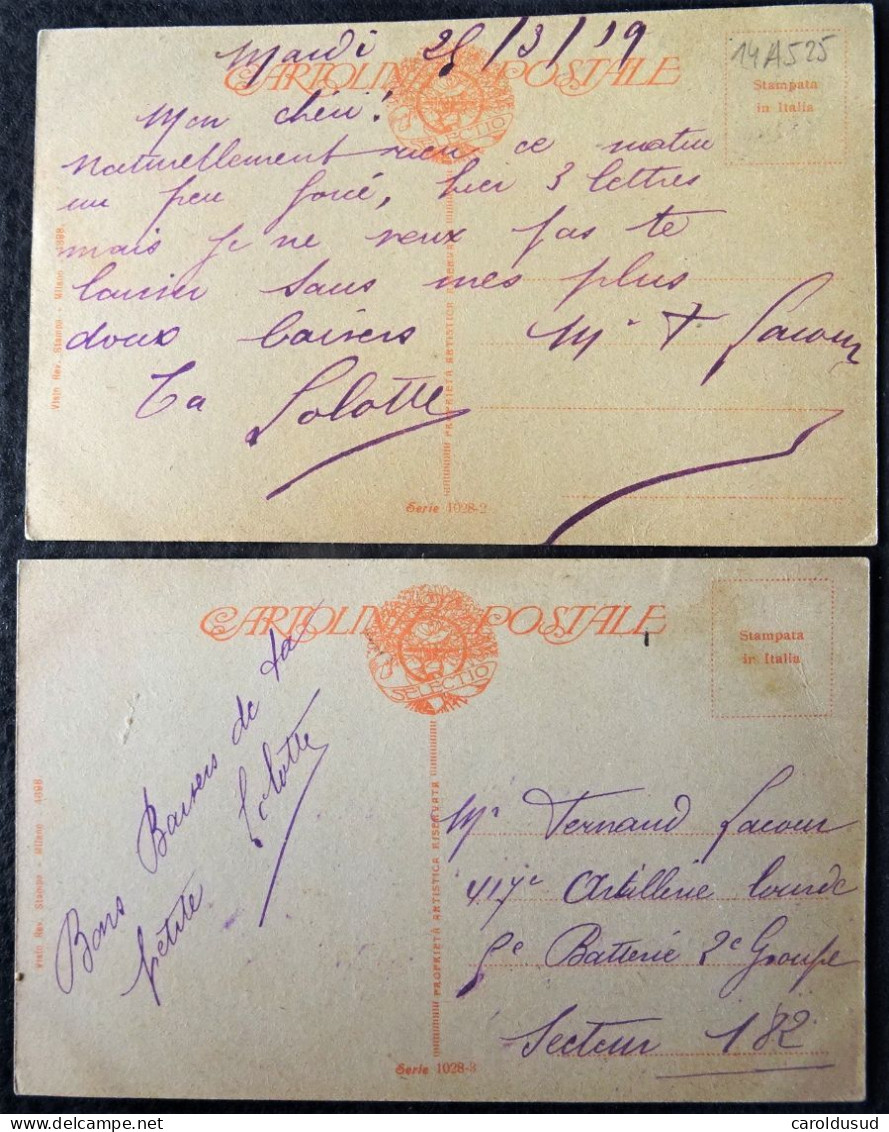 Mardi 25/3/19
14A525
CARTOLINA POSTALE
SELECTIO
Stampata
in Italia
Mon chéri!
Naturellement rien ce matin
un peu forcé, hier 3 lettres
mais je ne veux pas te
laisser sans mes plus
doux baisers
Mr F. Lacour
Ta Lolotte
Visto Rev. Stampa - Milano 4098
PROPRIETÀ ARTISTICA RISERVATA
Serie 1028-2
CARTOLINA POSTALE
SELECTIO
Stampata
in Italia
Bons Baisers de ta
petite Lolotte
Mr Fernand Lacour
417e Artillerie lourde
5e Batterie 2e Groupe
Secteur 182
Visto Rev. Stampa - Milano 4098
PROPRIETÀ ARTISTICA RISERVATA
Serie 1028-3
delcampe.net
caroldusud